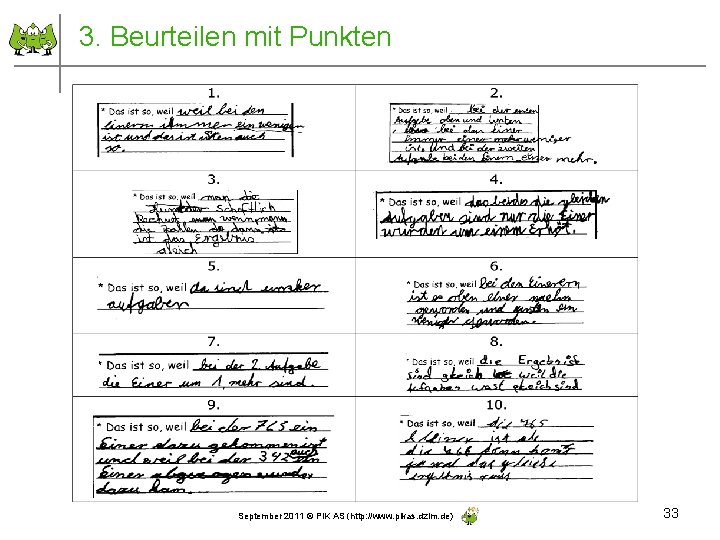 3. Beurteilen mit Punkten
1.
* Das ist so, weil weil bei den
einern immer ein wenigen
ist und das ist auch
so.
2.
* Das ist so, weil bei der einen
Aufgabe oben und unten
bei den einer
immer einer mehr weniger
ist, und bei der zweiten
Aufgabe bei den einern einer mehr.
3.
* Das ist so, weil man die
wenn mann
die Zahlen
ist das Ergebnis
gleich
4.
* Das ist so, weil das beides die gleichen
Aufgaben sind nur die Einer
wurden um einem Erhöt.
5.
* Das ist so, weil da sind
aufgaben
6.
* Das ist so, weil bei den Einern
ist es oben einer
geworden und unten ein
weniger geworden.
7.
* Das ist so, weil bei der 2. Aufgabe
die Einer um 1 mehr sind.
8.
* Das ist so, weil die Ergebnise
sind gleich weil die
Aufgaben gleich sind
9.
* Das ist so, weil bei der 765 ein
Einer dazu gekommen ist
und weil bei der 342 auch
Einer
dazu kam.
10.
* Das ist so, weil die 765
ist als
die
das gleiche
September 2011 © PIK AS (http://www.pikas.dzlm.de)
33